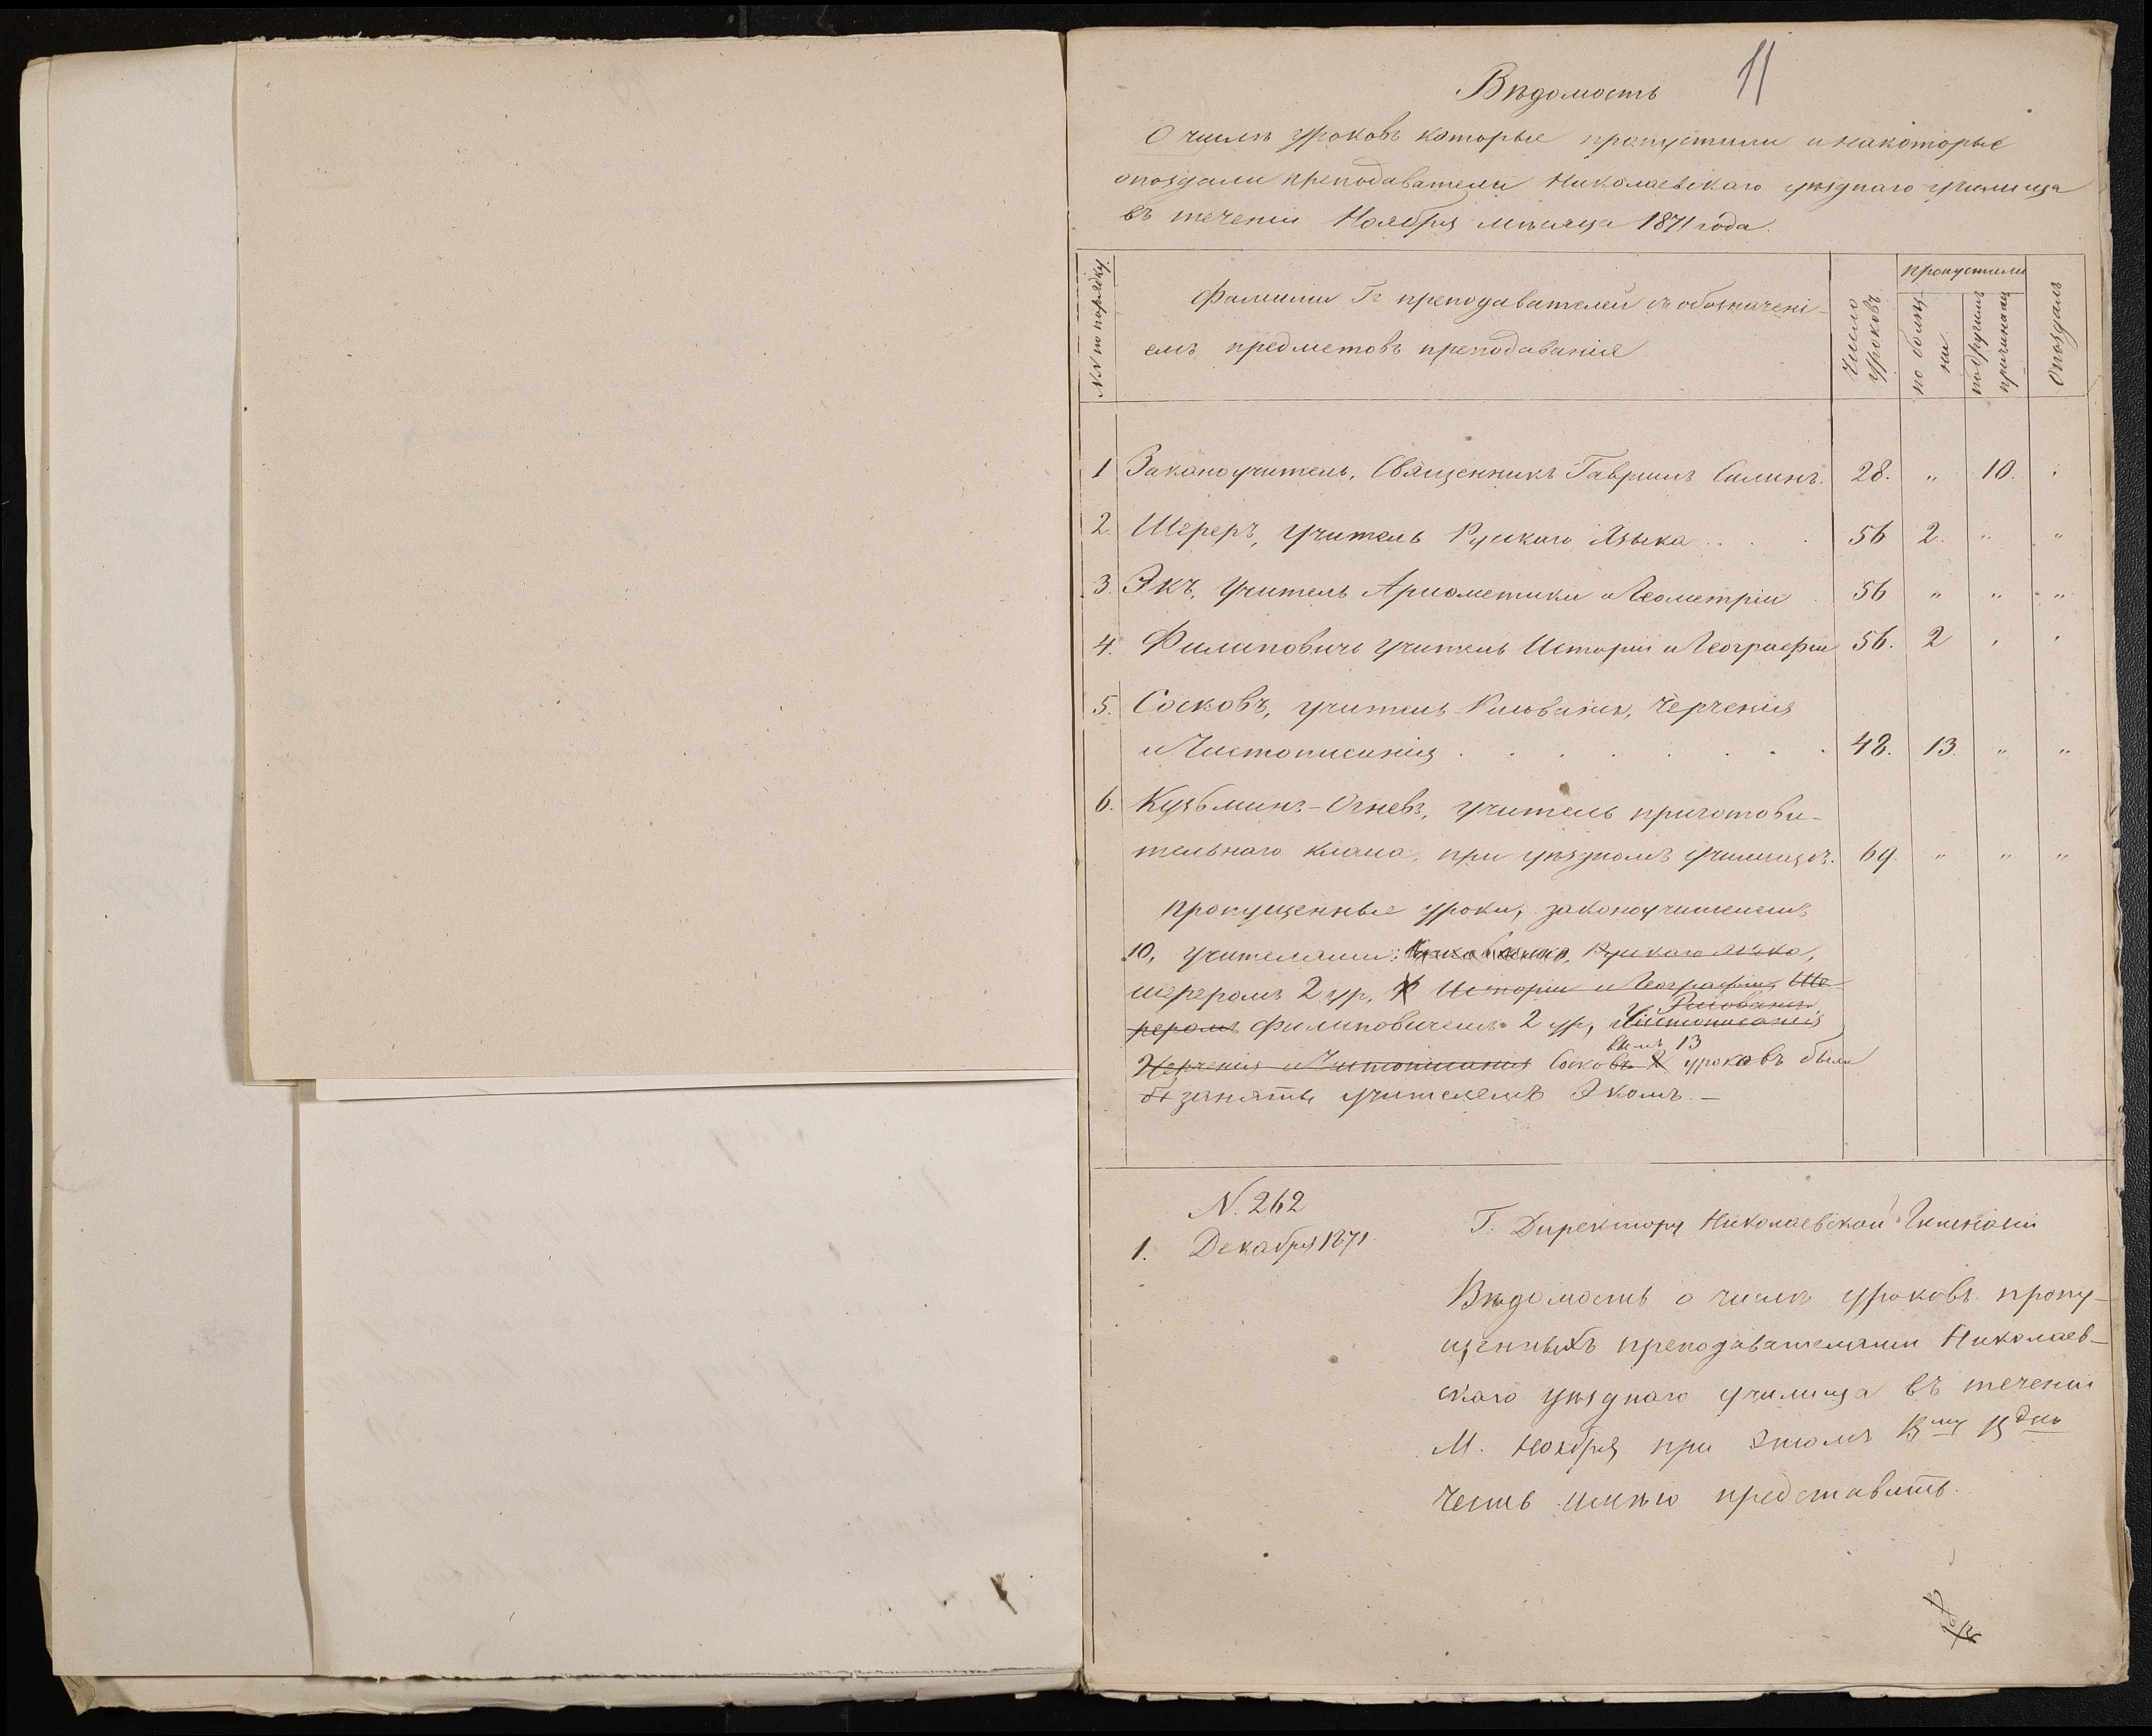 11
Вѣдомость
О числѣ уроковъ которые пропустили и на которые
опоздали преподаватели Николаевскаго уѣзднаго училища
въ теченіи Ноября мѣсяца 1871 года.
NN по порядку.
Фамиліи Гг. преподавателей съ обозначені-
емъ предметовъ преподаванія
Число уроковъ
пропустили
по болѣз-
ни
по другимъ
причинамъ
Опоздалъ
1 Законоучитель, Священникъ Гавріилъ Силинъ. 28. „ 10. „
2. Шереръ, учитель Рускаго Языка . . . 56 2. „ „
3. Экъ, учитель Ариѳметики и Геометріи 56 „ „ „
4. Филиповичъ учитель Исторіи и Географіи 56. 2 „ „
5. Сосковъ, учитель Рисованія, Черченія
и Чистописанія . . . . . . . 48. 13. „ „
6. Кузьминъ-Огневъ, учитель приготови-
тельнаго класса, при уѣздномъ училищѣ. 69. „ „ „
Пропущенные уроки, законоучителемъ
10, учителями: Рускаго языка,
Шереромъ 2 ур, Исторіи и Географіи, Ше-
Рисованія
реромъ Филиповичемъ 2 ур, Чистописанія
вымъ 13
Черченія и Чистописанія Соско уроковъ были
заняты учителемъ Экомъ. —
N. 262
1. Декабря 1871.
Г. Директору Николаевской Гимназіи
Вѣдомость о числѣ уроковъ пропу-
щенныхъ преподавателями Николаев-
скаго уѣзднаго училища въ теченіи
М. Ноября при этомъ
честь имѣю представить.